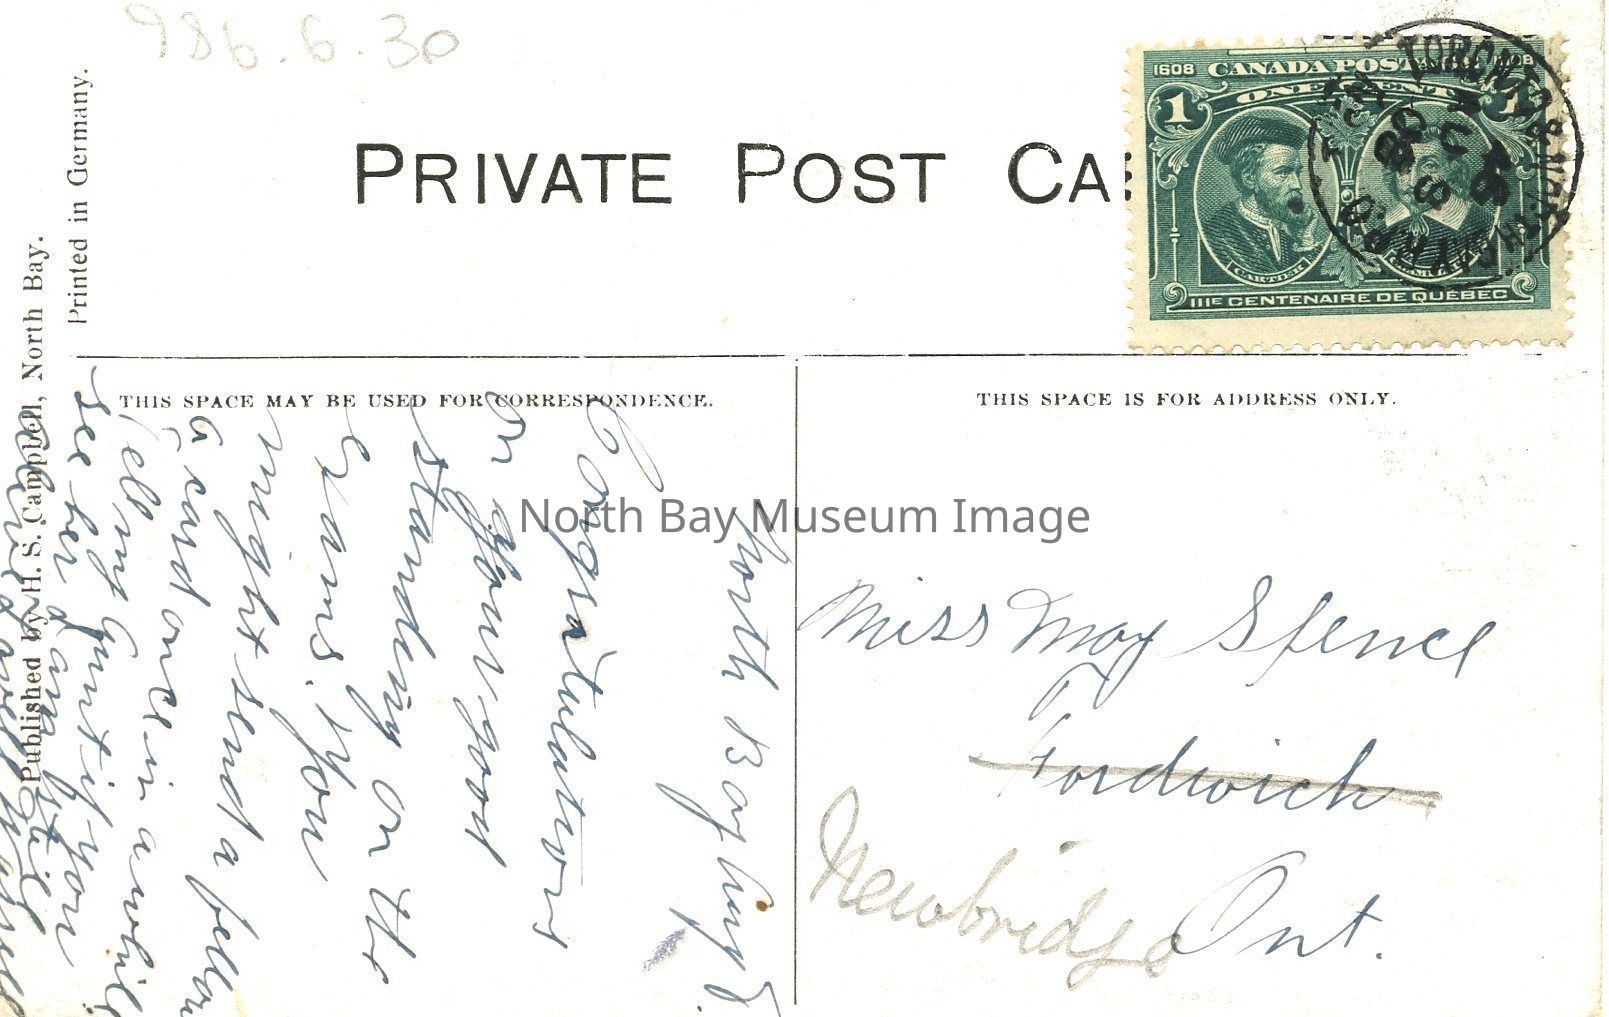 986.6.30
Printed in Germany.
PRIVATE POST CA
1608 CANADA POSTAGE 1908
1 ONE CENT 1
CARTIER
IIIE CENTENAIRE DE QUÉBEC
TORONTO & NORTH BAY R.P.O.
AU 8
08
Published by H. S. Campbell, North Bay.
THIS SPACE MAY BE USED FOR CORRESPONDENCE.
THIS SPACE IS FOR ADDRESS ONLY.
North Bay Aug 8.
Congratulations
on your good
standing on the
Exams. You
might send a fellow
a card once in awhile
Tell my Aunt if you
see her I am still
North Bay Museum Image
Miss May Spence
Fordwich
Newbridge Ont.